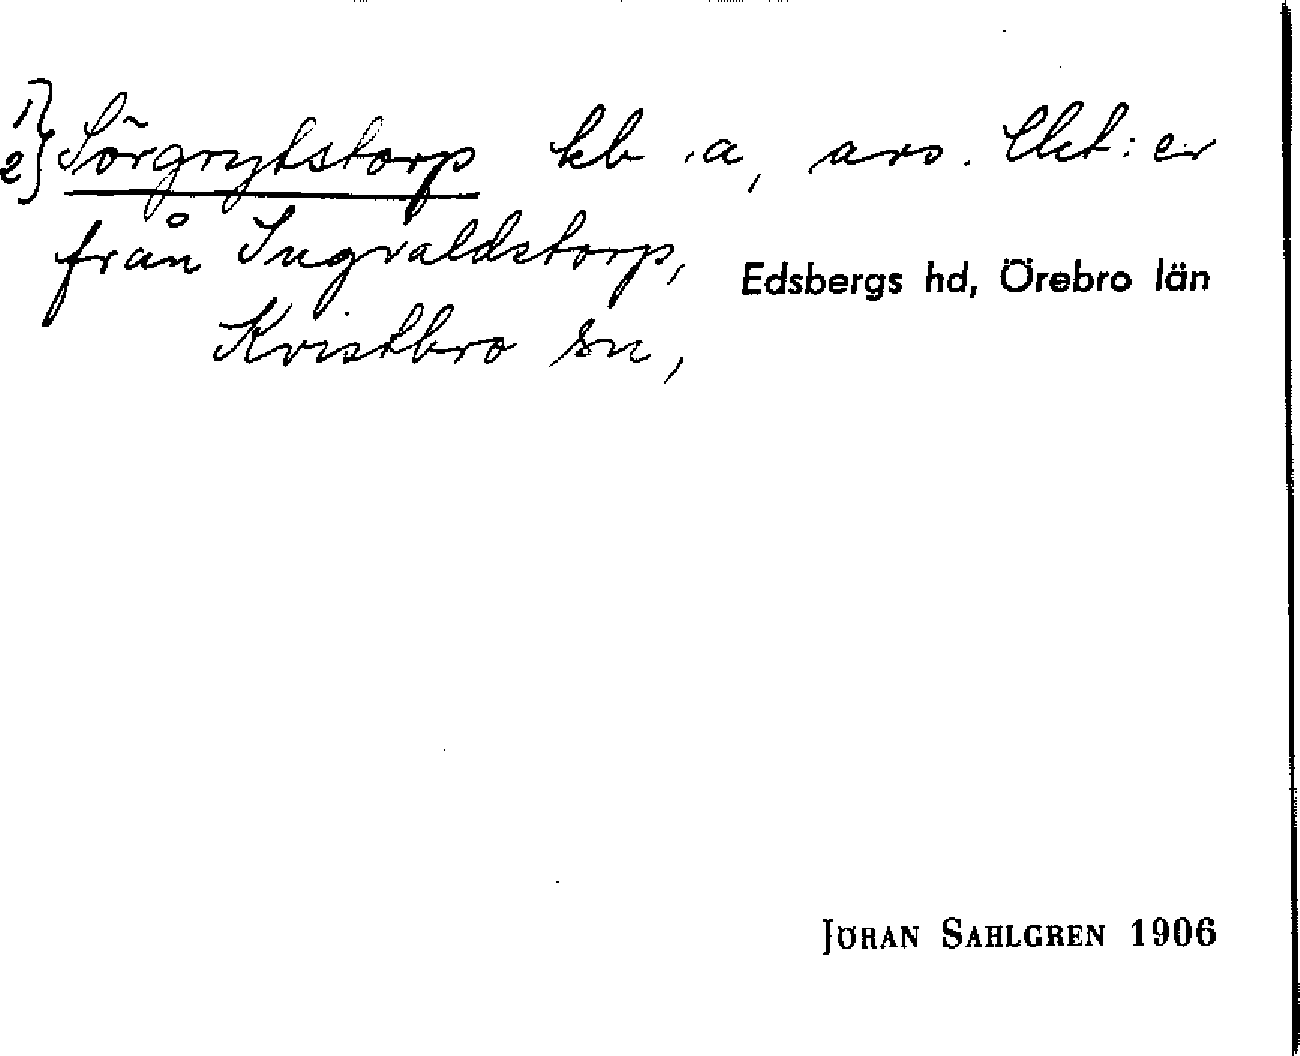 1)
2) Sörgrytstorp kb a, avs. lht:er
från Ingvaldstorp,
Edsbergs hd, Örebro län
Kvistbro sn,
JÖRAN SAHLGREN 1906